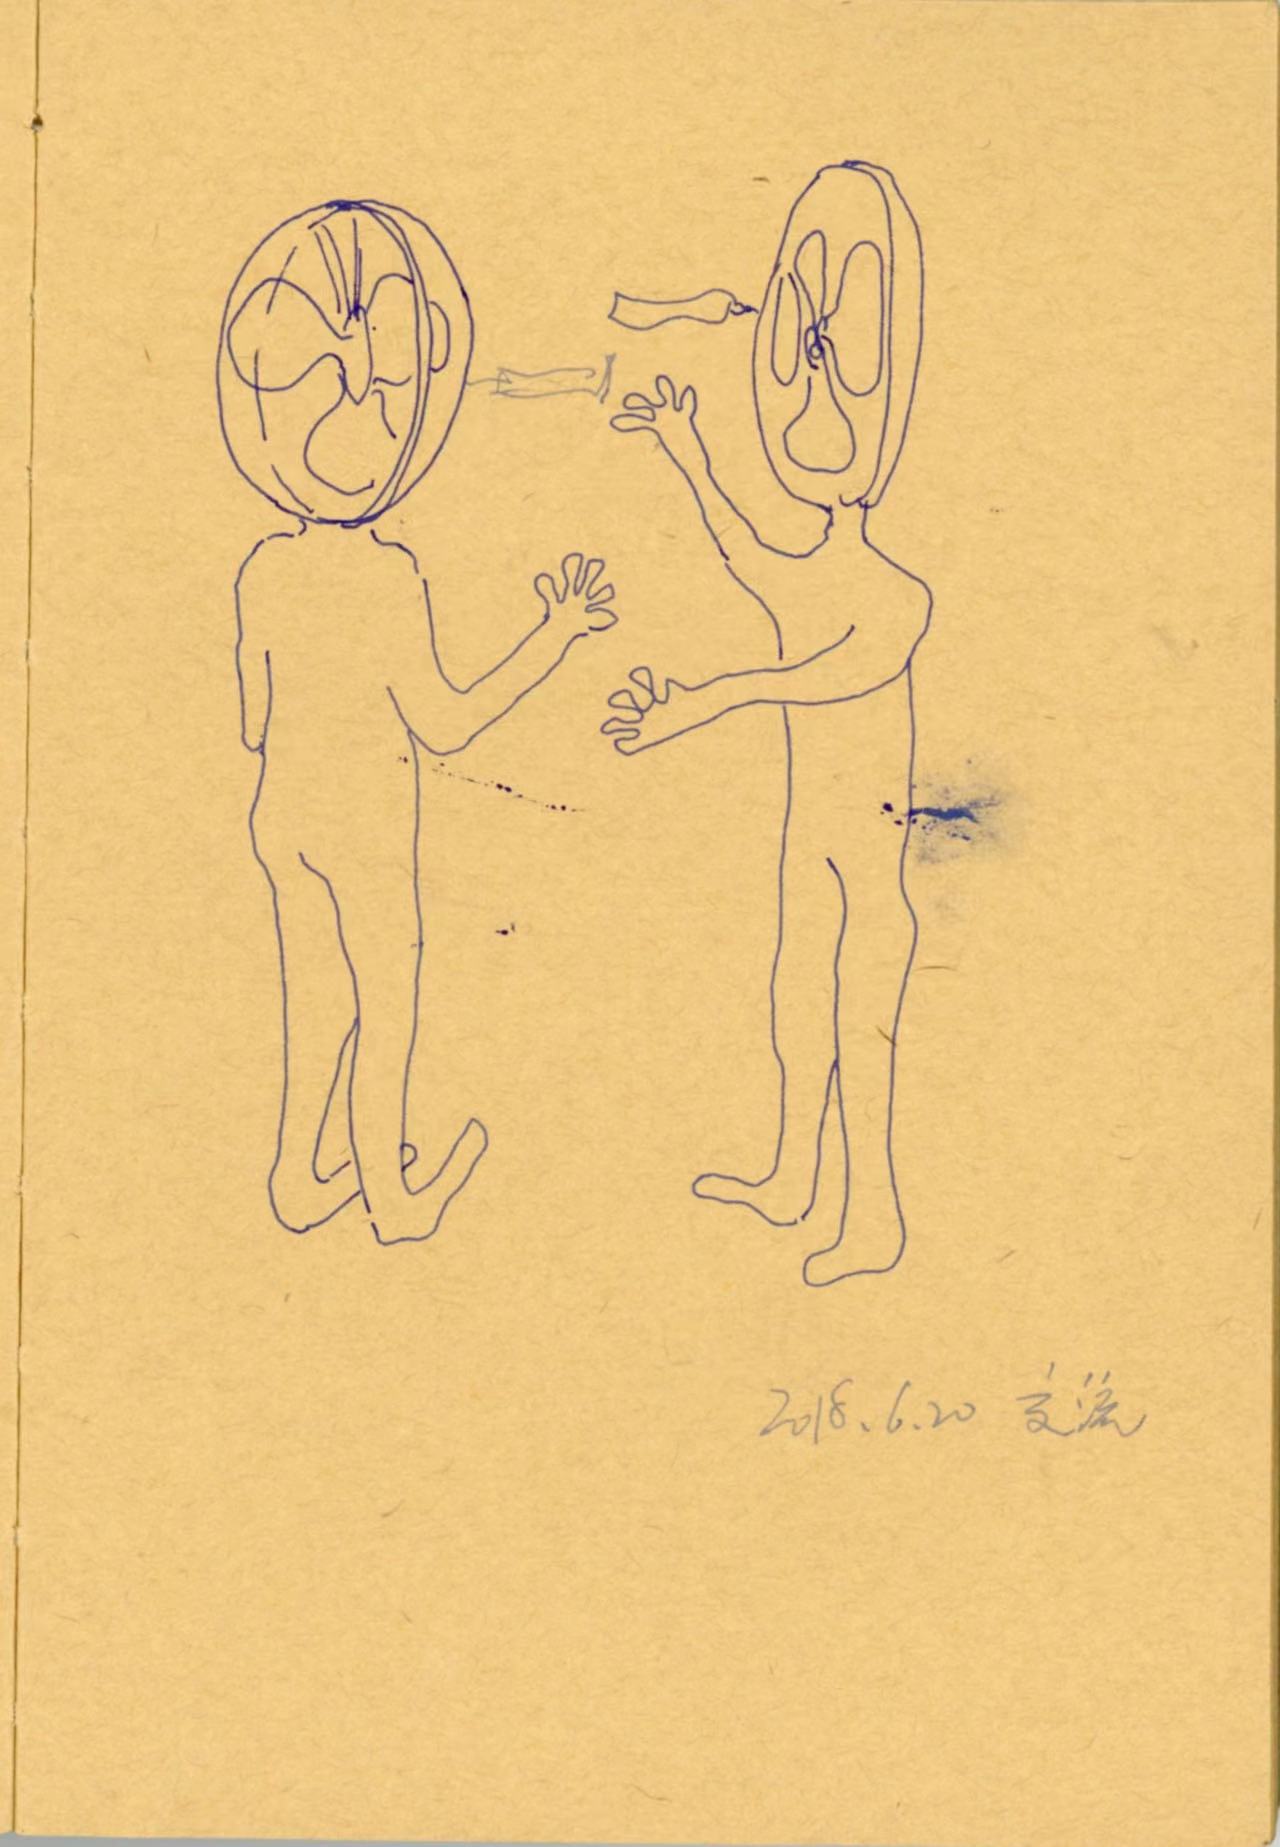 2018.6.20 交流